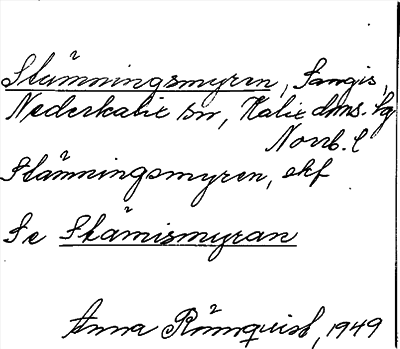 Stämningsmyren, Sangis,
Nederkalix sn, Kalix dms. lg
Norrb. l
Stämningsmyren, ekf
Se Stämismyran
Anna Rönnquist, 1949